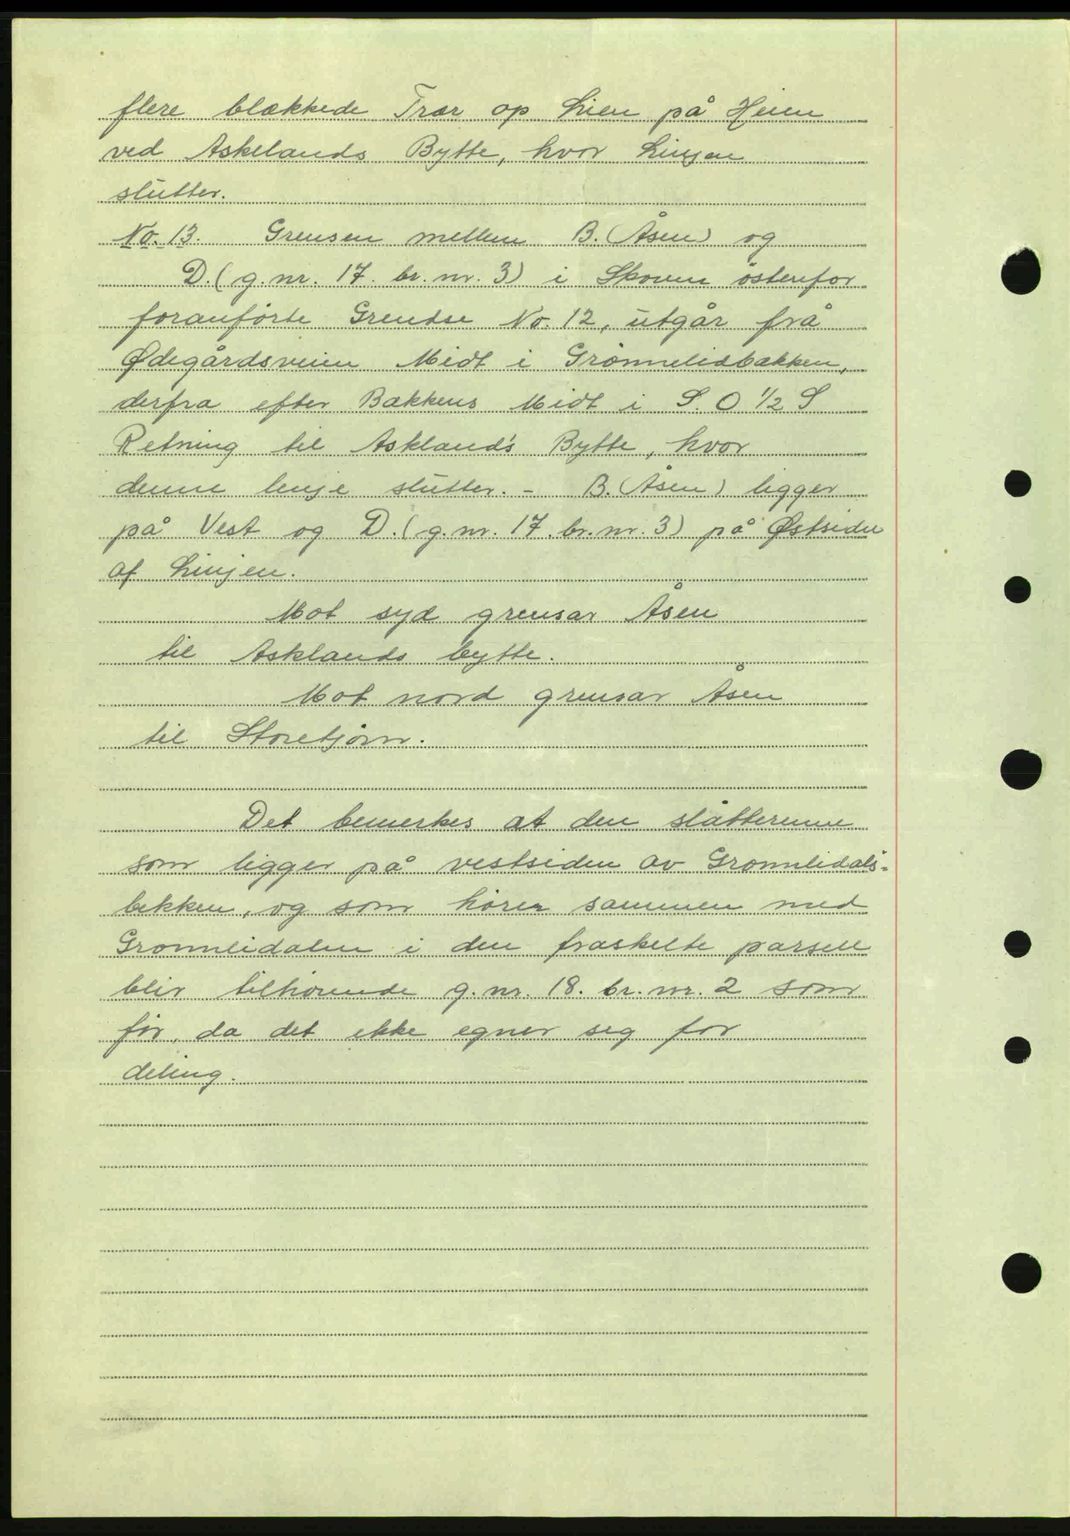 flere blækkede Trær op Lien på Heien
ved Askelands Bytte, hvor Linjen
slutter.
No. 13. Grensen mellem B. (Åsen) og
D. (g.nr. 17. br.nr. 3) i Skoven östenfor
foranførte Grendse No. 12, utgår frå
Ødegårdsveien Midt i Grønnelidbækken,
derfra efter Bækkens Midt i S. O 1/2 S
Retning til Asklands Bytte, hvor
denne lenje slutter. - B. (Åsen) ligger
på Vest og D. (g.nr. 17. br.nr. 3) på Østsiden
af Linjen.
Mot syd grensar Åsen
til Asklands bytte.
Mot nord grensar Åsen
til Storetjørn.
Det bemerkes at den slåtterenne
som ligger på vestsiden av Grønnlidals-
bekken, og som hører sammen med
Grønnlidalen i den fraskelte parsell
blir tilhørende g.nr. 18. br.nr. 2 som
før, da det ikke egner seg for
deling.